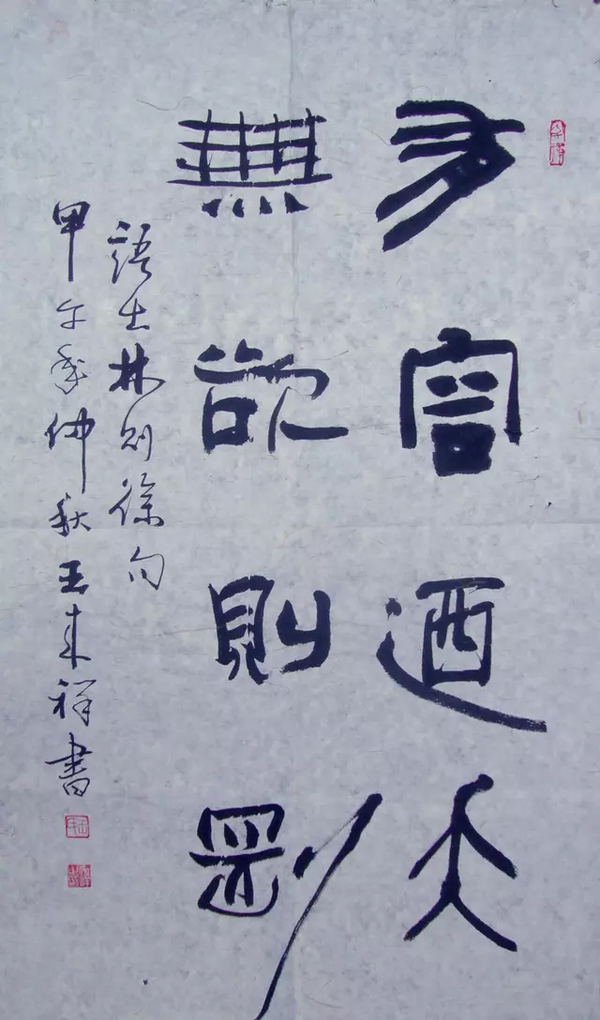 有容迺大
無欲則剛
語出林则徐句
甲午年仲秋王来祥書